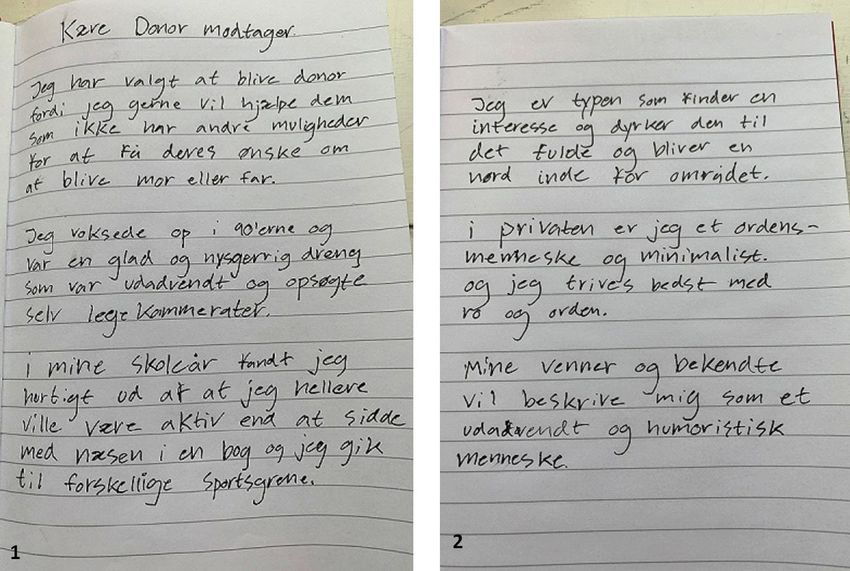 Kære Donor modtager.
Jeg har valgt at blive donor
fordi jeg gerne vil hjælpe dem
som ikke har andre muligheder
for at få deres ønske om
at blive mor eller far.
Jeg voksede op i 90'erne og
var en glad og nysgerrig dreng
som var udadvendt og opsøgte
selv legekammerater.
i mine skoleår fandt jeg
hurtigt ud af at jeg hellere
ville være aktiv end at sidde
med næsen i en bog og jeg gik
til forskellige sportsgrene.
1
Jeg er typen som finder en
interesse og dyrker den til
det fulde og bliver en
nørd inde for området.
i privaten er jeg et ordens-
menneske og minimalist.
og jeg trives bedst med
ro og orden.
Mine venner og bekendte
vil beskrive mig som et
udadvendt og humoristisk
menneske.
2